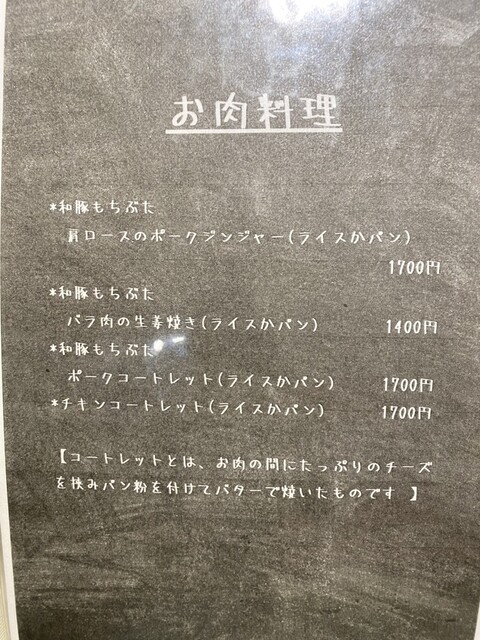 お肉料理
*和豚もちぶた
肩ロースのポークジンジャー(ライスかパン)
1700円
*和豚もちぶた
バラ肉の生姜焼き(ライスかパン) 1400円
*和豚もちぶた
ポークコートレット(ライスかパン) 1700円
*チキンコートレット(ライスかパン) 1700円
【コートレットとは、お肉の間にたっぷりのチーズ
を挟みパン粉を付けてバターで焼いたものです 】